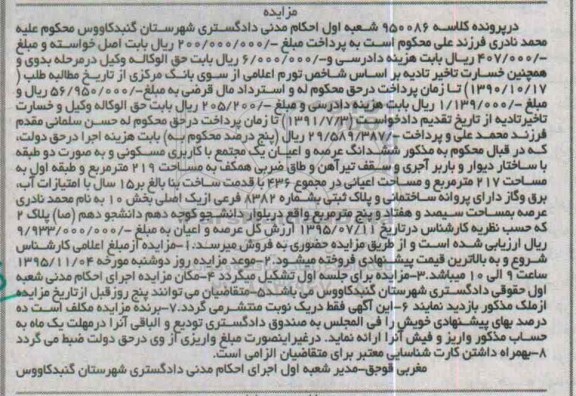 مزایده
درپرونده کلاسه ۹۵۰۰۸۶ شعبه اول احکام مدنی دادگستری شهرستان گنبدکاووس محکوم علیه
محمد نادری فرزند علی محکوم است به پرداخت مبلغ -/۲۰۰/۰۰۰/۰۰۰ ریال بابت اصل خواسته و مبلغ
-/۴۰۷/۰۰۰ ریال بابت هزینه دادرسی و-/۶/۰۰۰/۰۰۰ ریال بابت حق الوکاله وکیل درمرحله بدوی و
همچنین خسارت تاخیر تادیه بر اساس شاخص تورم اعلامی از سوی بانک مرکزی از تاریخ مطالبه طلب (
۱۳۹۰/۱۰/۱۷) تا زمان پرداخت درحق محکوم له و استرداد مال قرضی به مبلغ-/۵۶/۹۵۰/۰۰۰ ریال و
مبلغ -/۱/۱۳۹/۰۰۰ ریال بابت هزینه دادرسی و مبلغ -/۲۰۵/۲۰۰ ریال بابت حق الوکاله وکیل و خسارت
تاخیرتادیه از تاریخ تقدیم دادخواست (۱۳۹۱/۷/۳) تا زمان پرداخت درحق محکوم له حسن سلمانی مقدم
فرزند محمد علی و پرداخت -/۲۹/۵۸۹/۳۸۷ ریال (پنج درصد محکوم به) بابت هزینه اجرا درحق دولت،
که در قبال محکوم به مذکور ششدانگ عرصه و اعیان یک مجتمع با کاربری مسکونی و به صورت دو طبقه
با ساختار دیوار و باربر آجری و سقف تیرآهن و طاق ضربی همکف به مساحت ۲۱۹ مترمربع و طبقه اول به
مساحت ۲۱۷ مترمربع و مساحت اعیانی در مجموع ۴۳۶ با قدمت ساخت بنا بالغ بر۱۵ سال با امتیازات آب،
برق وگاز دارای پروانه ساختمانی و پلاک ثبتی بشماره ۸۳۸۲ فرعی ازیک اصلی بخش ۱۰ به نام محمد نادری
عرصه بمساحت سیصد و هفتاد و پنج مترمربع واقع دربلوار دانشجو کوچه دهم دانشجو دهم (صا) پلاک ۲
که حسب نظریه کارشناس درتاریخ ۱۳۹۵/۰۷/۱۱ ارزش کل عرصه و اعیان به مبلغ -/۹/۹۳۳/۰۰۰/۰۰۰
ریال ارزیابی شده است و از طریق مزایده حضوری به فروش میرسد.۱-مزایده ازمبلغ اعلامی کارشناس
شروع و به بالاترین قیمت پیشنهادی فروخته میشود.۲-موعد مزایده روز دوشنبه مورخه ۱۳۹۵/۱۱/۰۴
ساعت ۹ الی ۱۰ میباشد.۳-مزایده برای جلسه اول تشکیل میگردد ۴-مکان مزایده اجرای احکام مدنی شعبه
اول حقوقی دادگستری شهرستان گنبدکاووس می باشد.۵-متقاضیان می توانند پنج روزقبل ازتاریخ مزایده
ازملک مذکور بازدید نمایند ۶-این آگهی فقط دریک نوبت منتشرمی گردد.۷-برنده مزایده مکلف است ده
درصد بهای پیشنهادی خویش را فی المجلس به صندوق دادگستری تودیع و الباقی آنرا درمهلت یک ماه به
حساب مذکور واریز و فیش آنرا ارائه نماید. درغیراینصورت مبلغ واریزی از وی درحق دولت ضبط می گردد
۸-بهمراه داشتن کارت شناسایی معتبر برای متقاضیان الزامی است.
مغربی قوجق-مدیر شعبه اول اجرای احکام مدنی دادگستری شهرستان گنبدکاووس